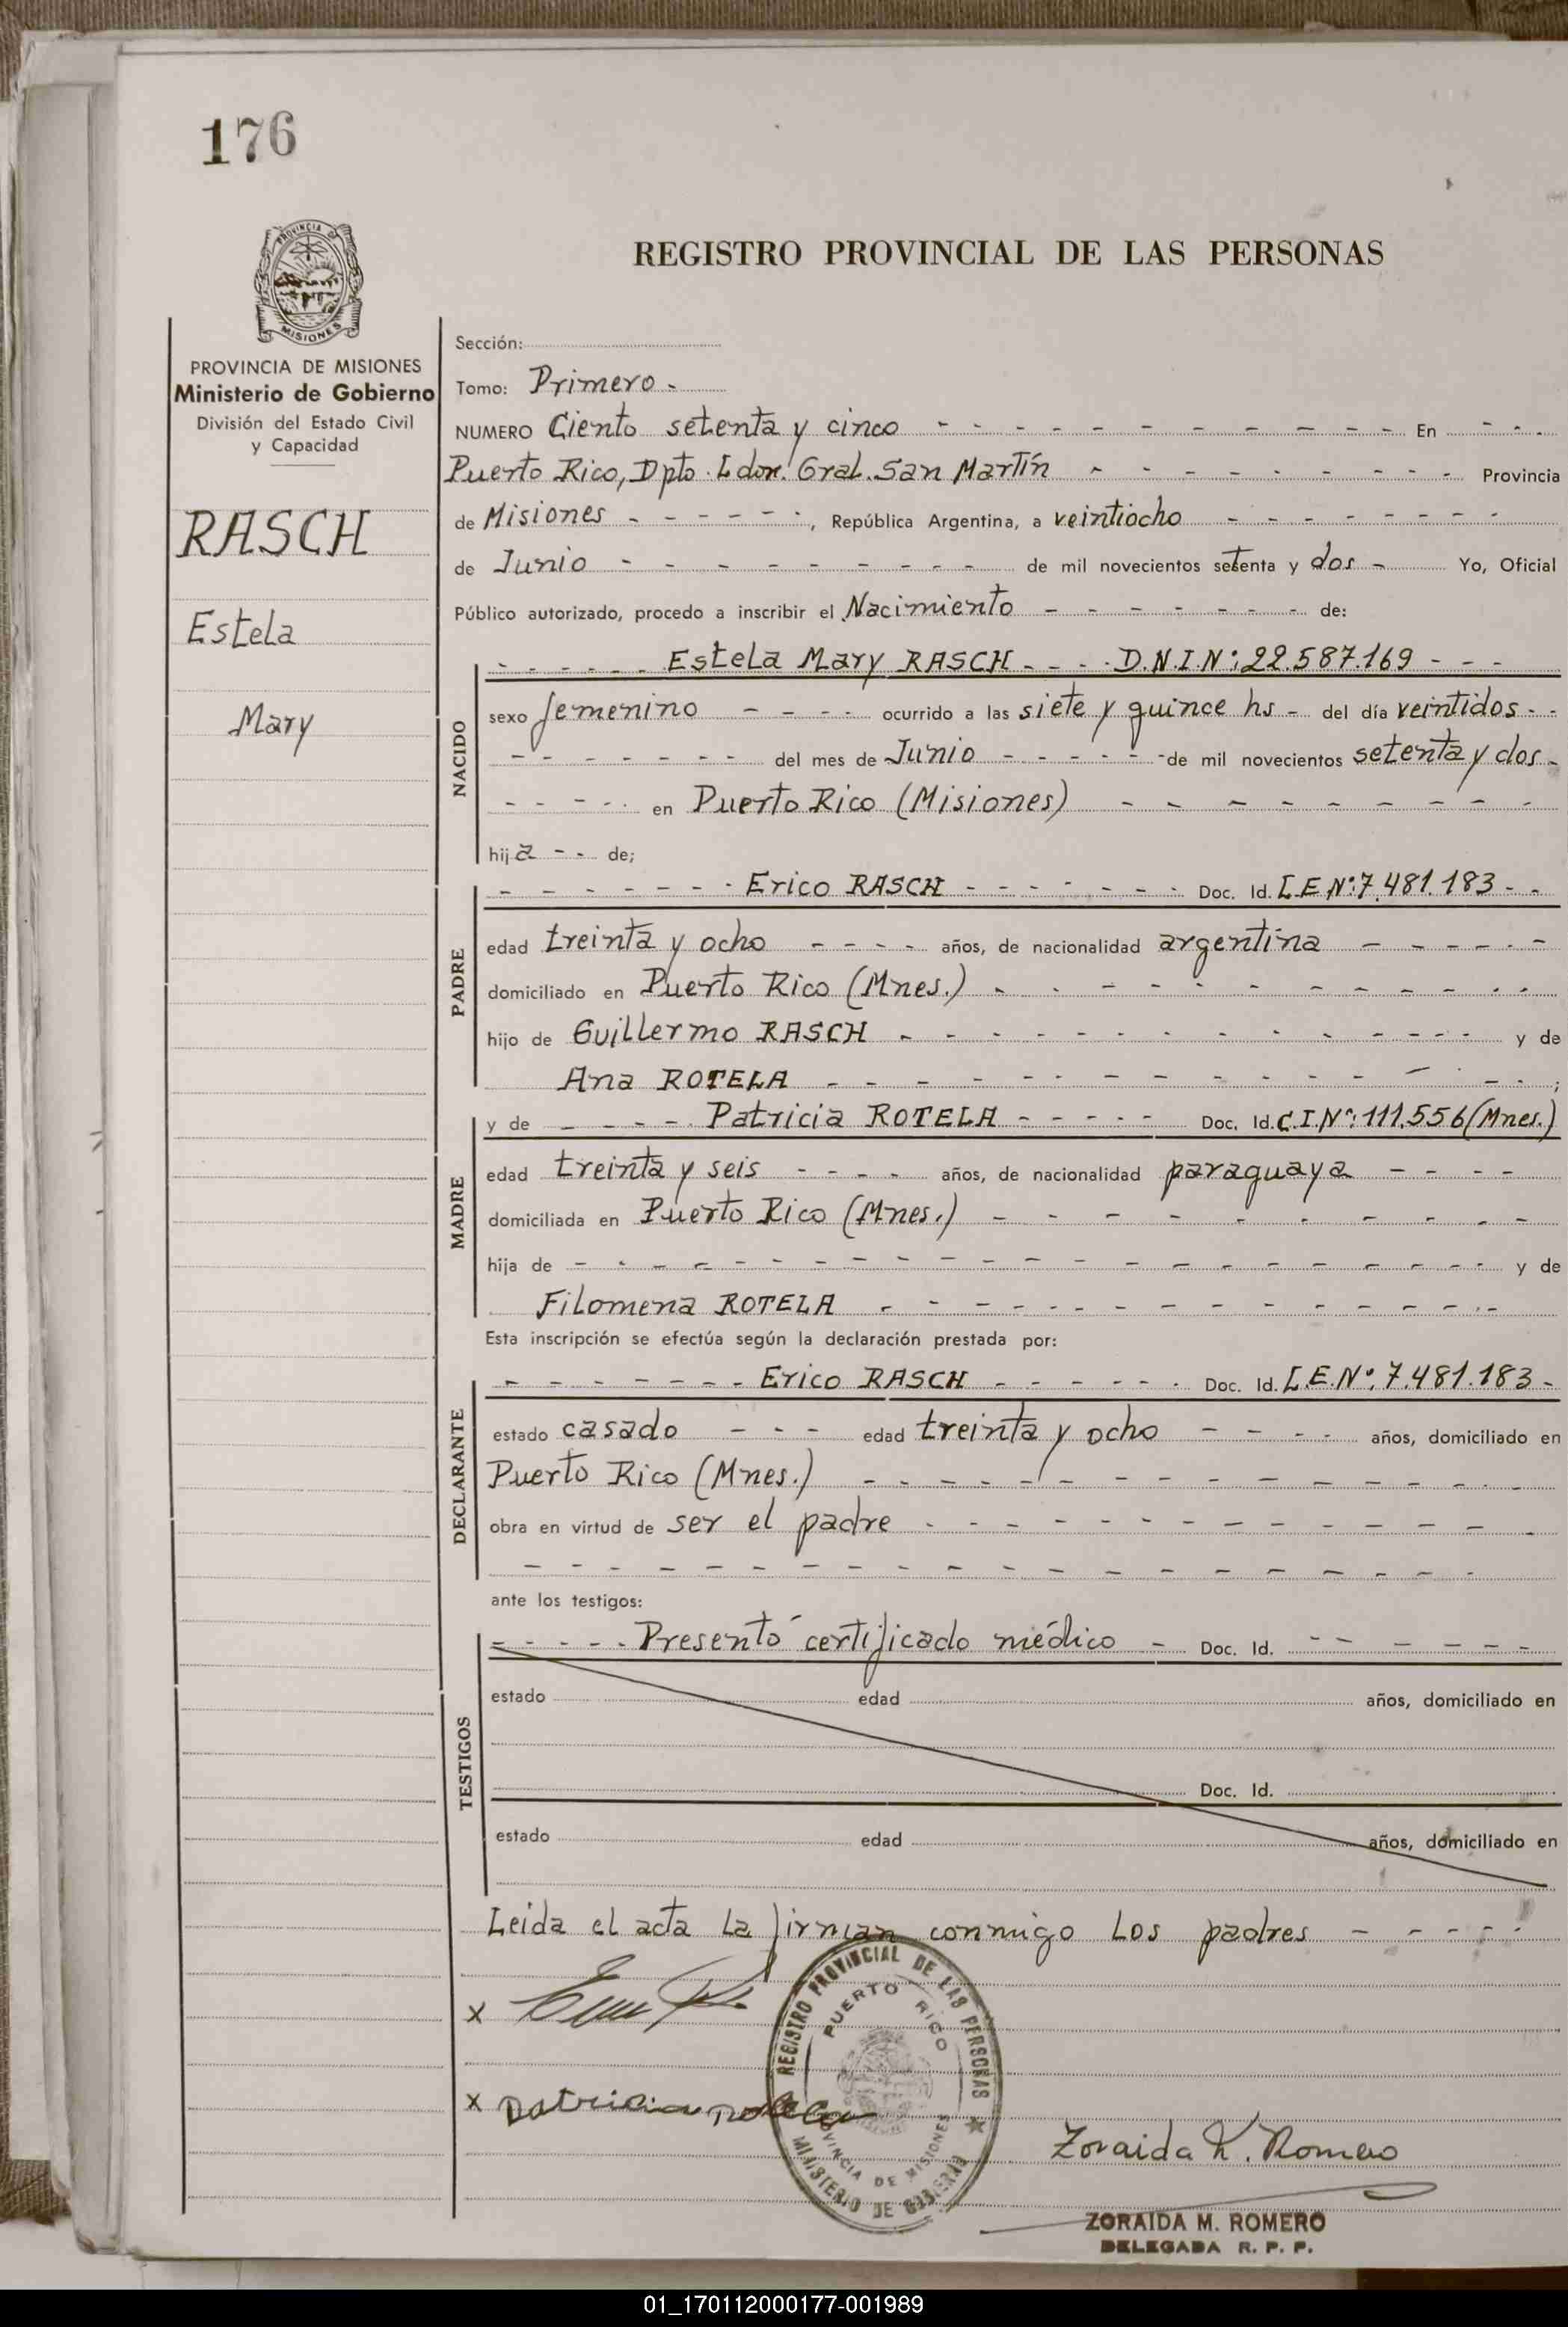 176
REGISTRO PROVINCIAL DE LAS PERSONAS
PROVINCIA DE MISIONES
Ministerio de Gobierno
División del Estado Civil
y Capacidad
RASCH
Estela
Mary
Sección:
Tomo: Primero.
NUMERO Ciento setenta y cinco - - - En
Puerto Rico, Dpto. Ldor. Gral. San Martín - - - Provincia
de Misiones - - - , República Argentina, a veintiocho - - -
de Junio - - - de mil novecientos setenta y dos - Yo, Oficial
Público autorizado, procedo a inscribir el Nacimiento - - - de:
NACIDO
- - - Estela Mary RASCH - - - D.N.I.Nº:22.587.169 - - -
sexo femenino - - - ocurrido a las siete y quince hs - del día veintidos - -
- - - del mes de Junio - - - de mil novecientos setenta y dos -
- - - en Puerto Rico (Misiones) - - -
hija - - de;
PADRE
- - - Erico RASCH - - - Doc. Id. L.E.Nº:7.481.183 - -
edad treinta y ocho - - - años, de nacionalidad argentina - - -
domiciliado en Puerto Rico (Mnes.) - - -
hijo de Guillermo RASCH - - - y de
Ana ROTELA - - - ;
MADRE
y de - - - Patricia ROTELA - - - Doc. Id. C.I.Nº:111.556(Mnes.)
edad treinta y seis - - - años, de nacionalidad paraguaya - - -
domiciliada en Puerto Rico (Mnes.) - - -
hija de - - - y de
Filomena ROTELA - - -
Esta inscripción se efectúa según la declaración prestada por:
DECLARANTE
- - - Erico RASCH - - - Doc. Id. L.E.Nº:7.481.183 -
estado casado - - - edad treinta y ocho - - - años, domiciliado en
Puerto Rico (Mnes.) - - -
obra en virtud de ser el padre - - -
- - -
ante los testigos:
TESTIGOS
- - - Presentó certificado médico - Doc. Id. - - -
estado edad años, domiciliado en
Doc. Id.
estado edad años, domiciliado en
Leida el acta la firman conmigo los padres - - -
x
x Patricia Rotela
REGISTRO PROVINCIAL DE LAS PERSONAS
PUERTO RICO
PROVINCIA DE MISIONES
MINISTERIO DE GOBIERNO
Zoraida M. Romero
ZORAIDA M. ROMERO
DELEGADA R. P. P.
01_170112000177-001989